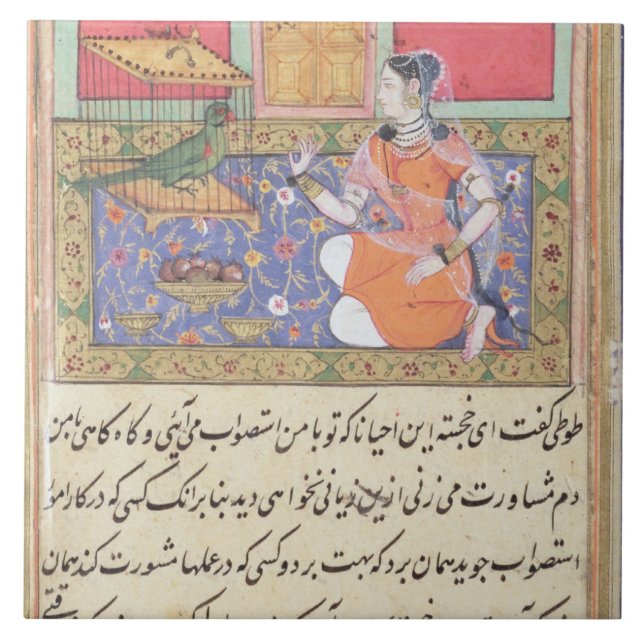 طوطی گفت ای خجسته این احیانا که تو با من استصواب می آیئی و گاه گاهی با من
دم مشاورت می زنی ازین زیانی نخواهی دید بنا بر انک کسی که در کارها
استصواب جوید همان برد که بهت برد و کسی که در عملها مشورت کند همان